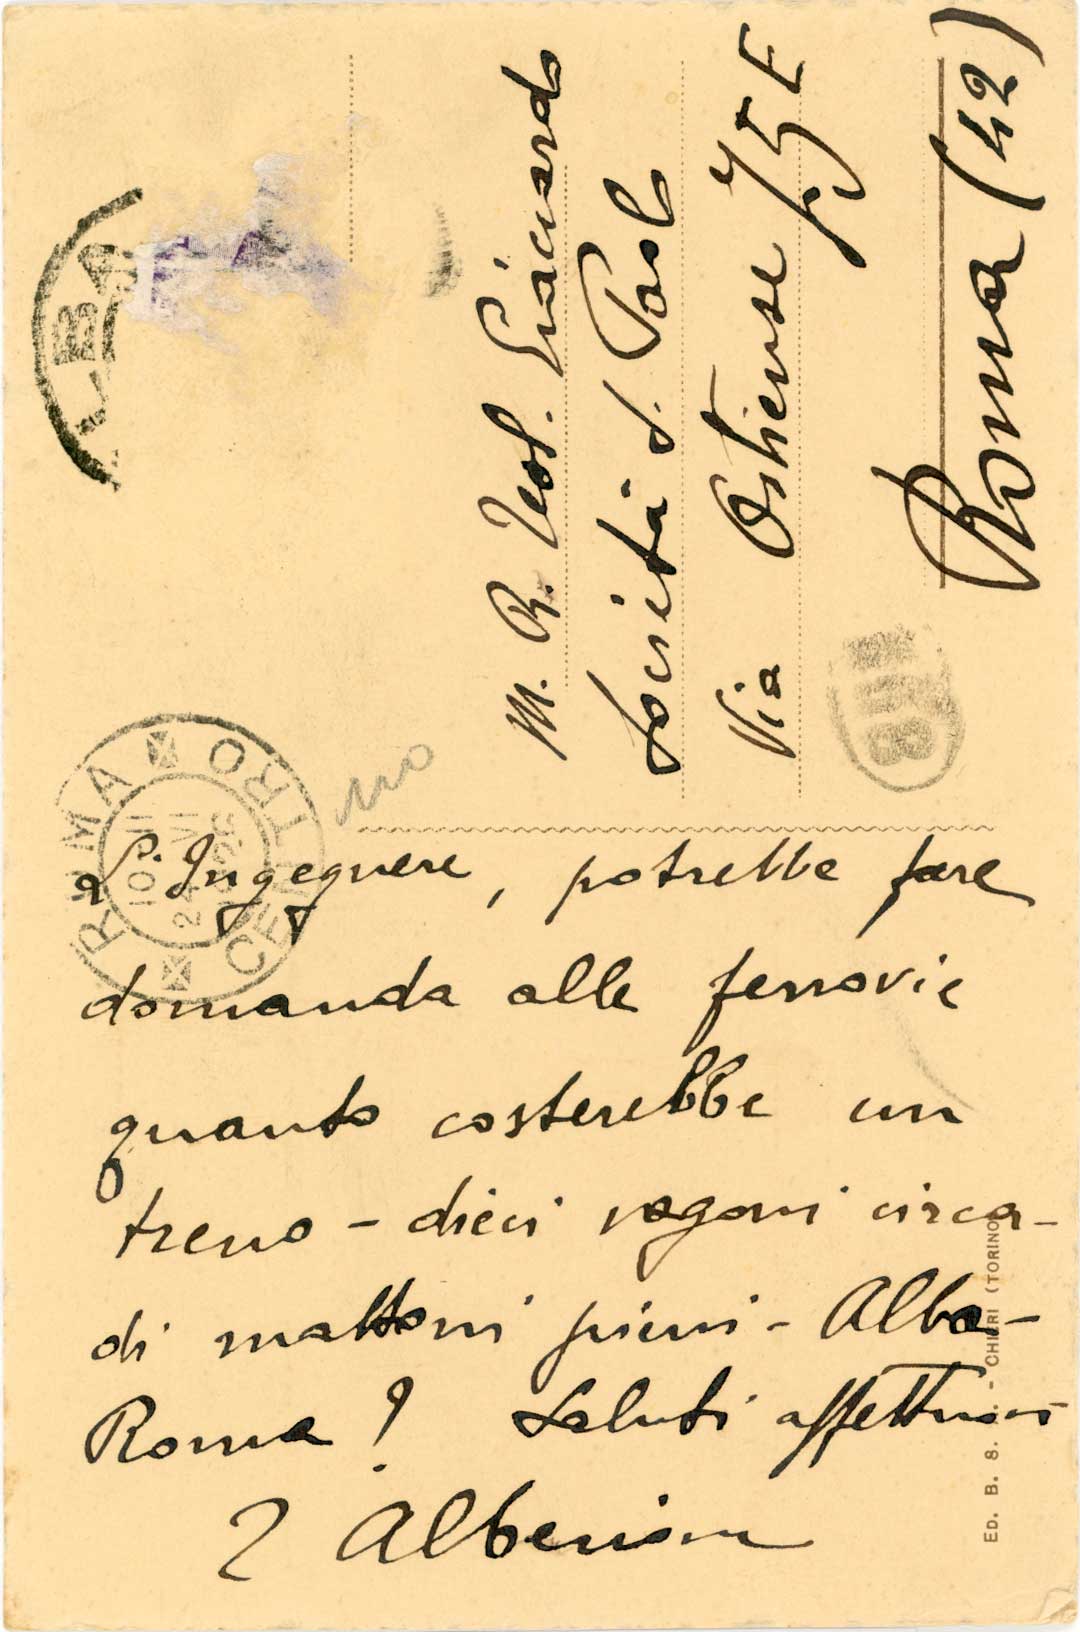 L'Ingegnere, potrebbe fare
domanda alle ferrovie
quanto costerebbe un
treno - dieci vagoni circa -
di mattoni pieni - Alba -
Roma? Saluti affettuosi
Alberione
M. R. Teol. Giaccardo
Società S. Paolo
Via Ostiense 75 E
Roma (42)
ALBA
ROMA CENTRO
ED. B. S. - CHIERI (TORINO)